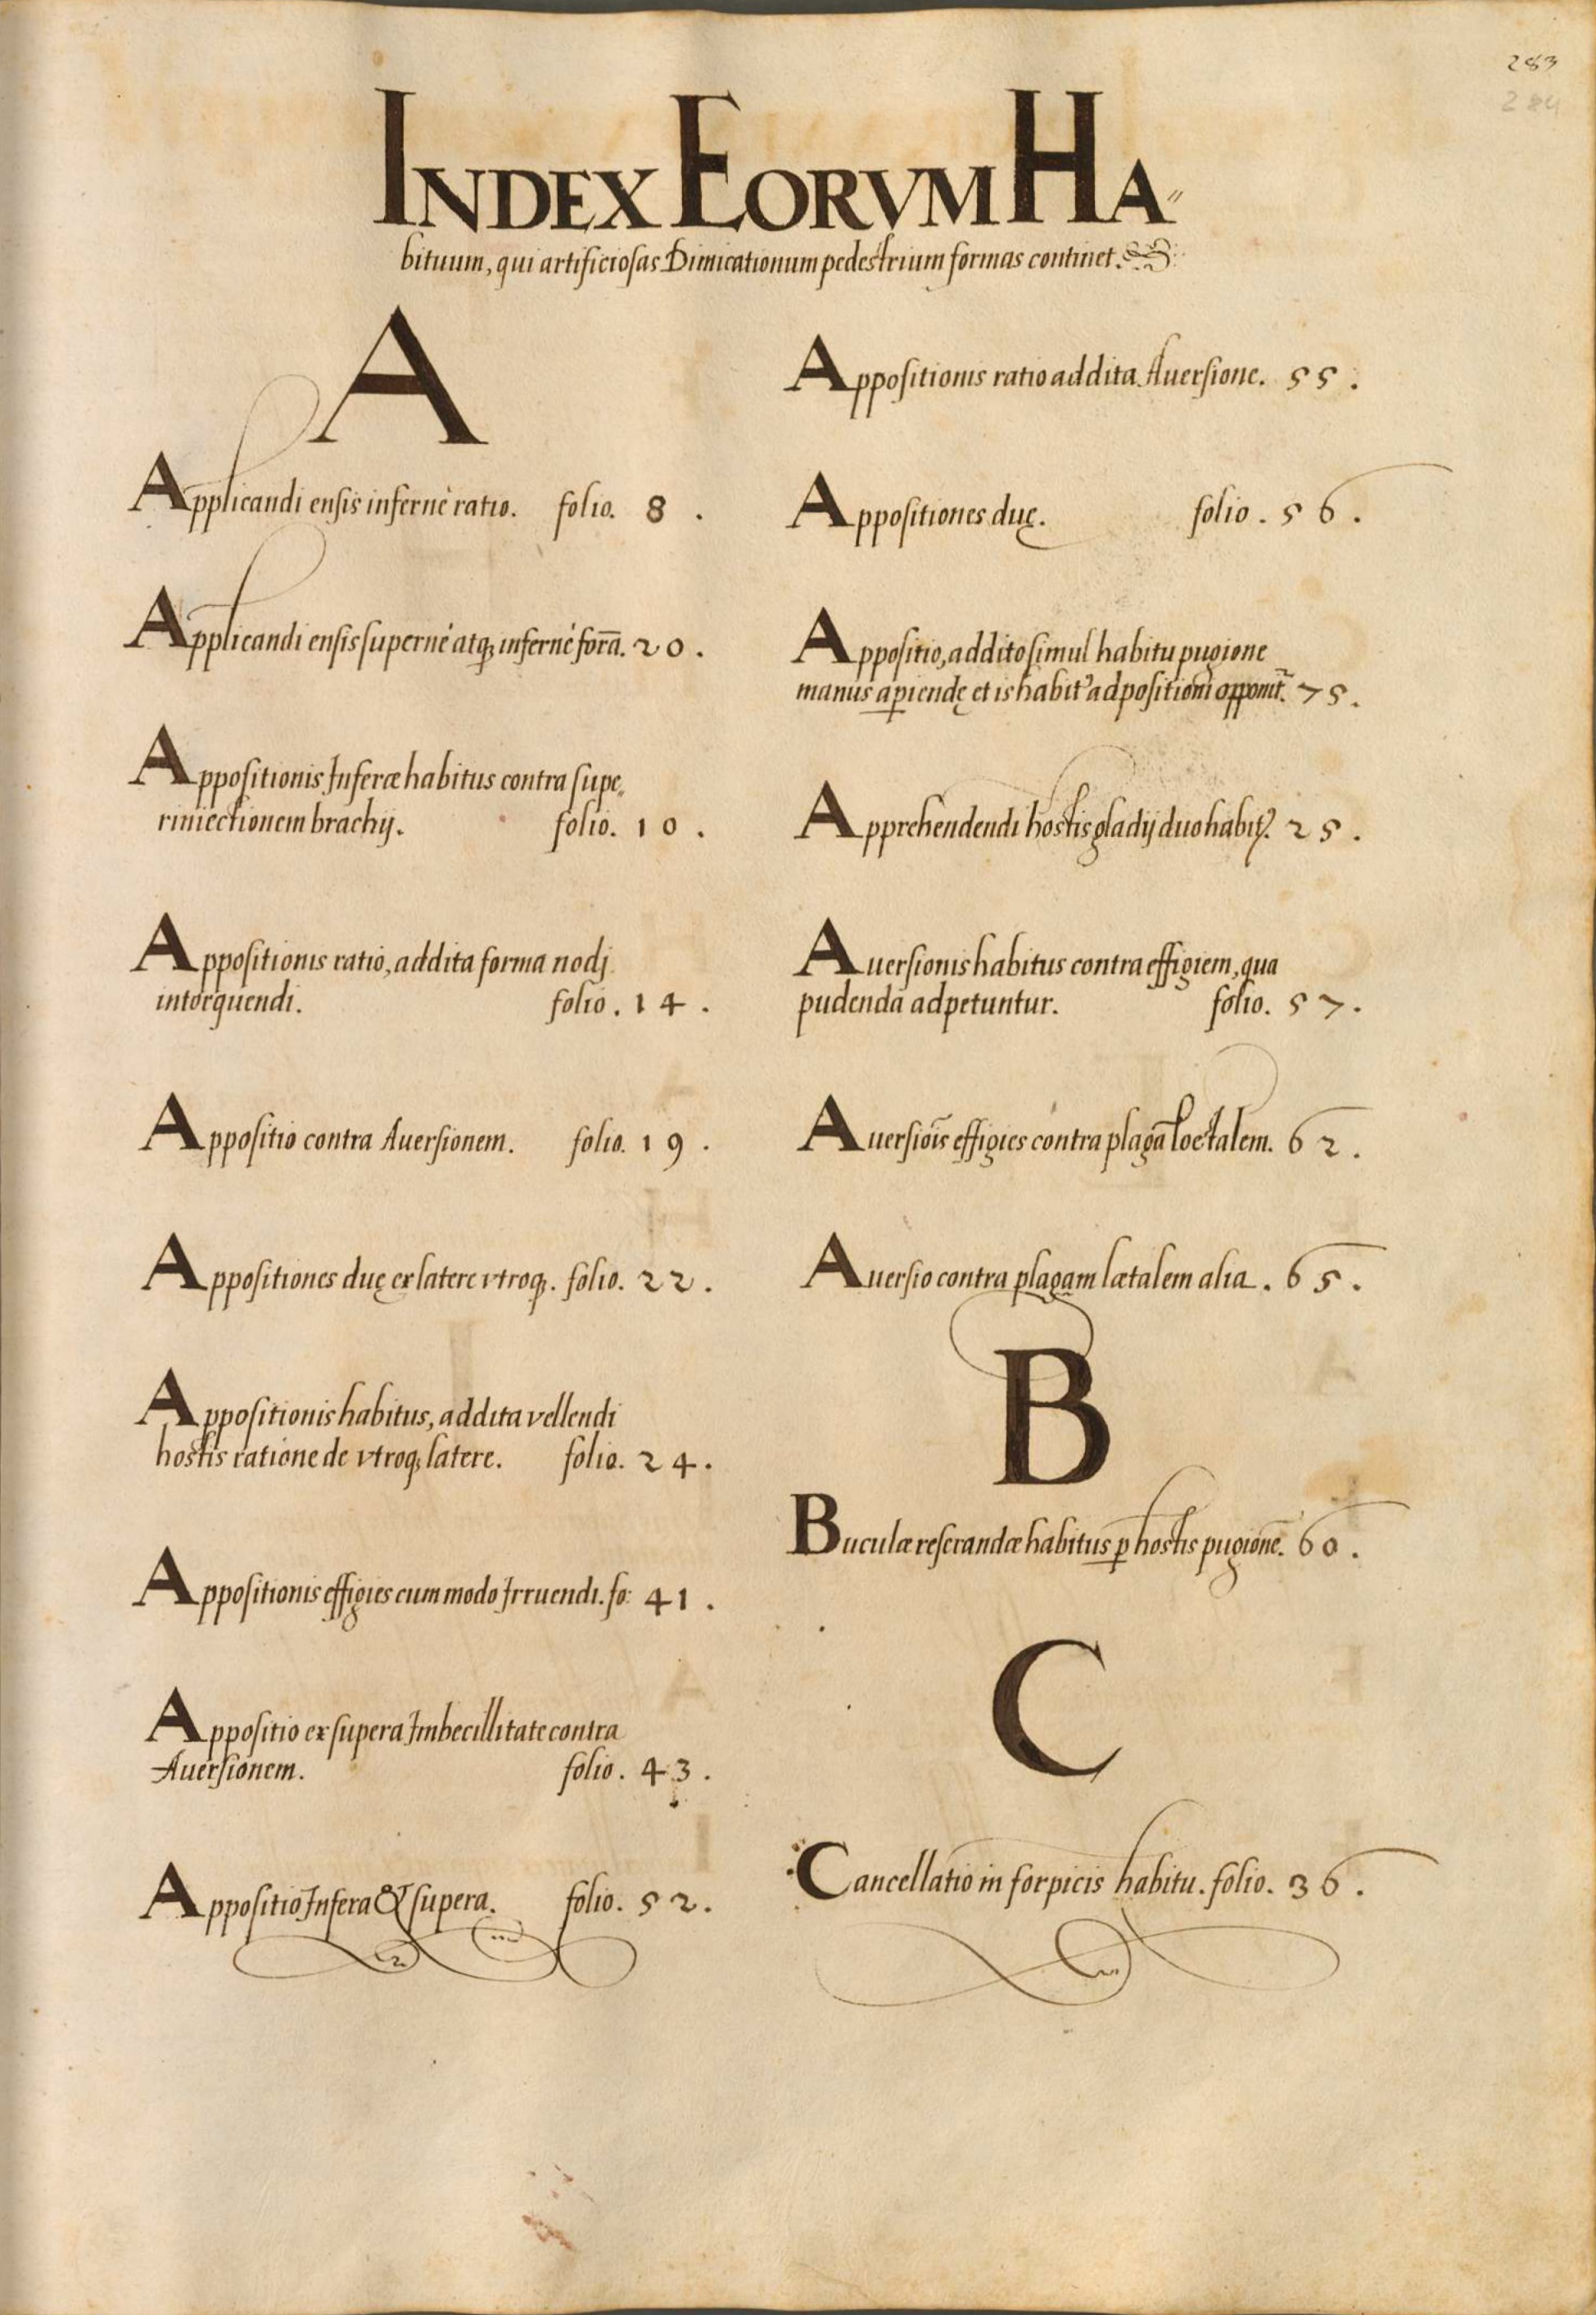 283
284
INDEX EORVM HA〃
bituum, qui artificiosas Dimicationum pedestrium formas continet.
A
Applicandi ensis infernè ratio. folio. 8 .
Applicandi ensis supernè atq; infernè forā. 20 .
Appositionis Inferæ habitus contra supe〃
riniectionem brachij. folio. 10 .
Appositionis ratio, addita forma nodj
intorquendi. folio . 14 .
Appositio contra Auersionem. folio. 19 .
Appositiones duę ex latere vtroq;. folio. 22 .
Appositionis habitus, addita vellendi
hostis ratione de vtroq; latere. folio. 24 .
Appositionis effigies cum modo Irruendi. fo: 41 .
Appositio ex supera Imbecillitate contra
Auersionem. folio . 43 .
Appositio Infera & supera. folio. 52 .
Appositionis ratio addita Auersione. 55 .
Appositiones duę. folio . 56 .
Appositio, addito simul habitu pugione
manus apiendę et is habit⁹ adpositioni opponit~. 75 .
Apprehendendi hostis gladij duo habit⁹. 25 .
Auersionis habitus contra effigiem, qua
pudenda adpetuntur. folio. 57 .
Auersiōis effigies contra plagā loetalem. 62 .
Auersio contra plagam lætalem alia . 65 .
B
Buculæ reserandæ habitus p̱ hostis pugionē. 60 .
C
Cancellatio in forpicis habitu . folio. 36 .